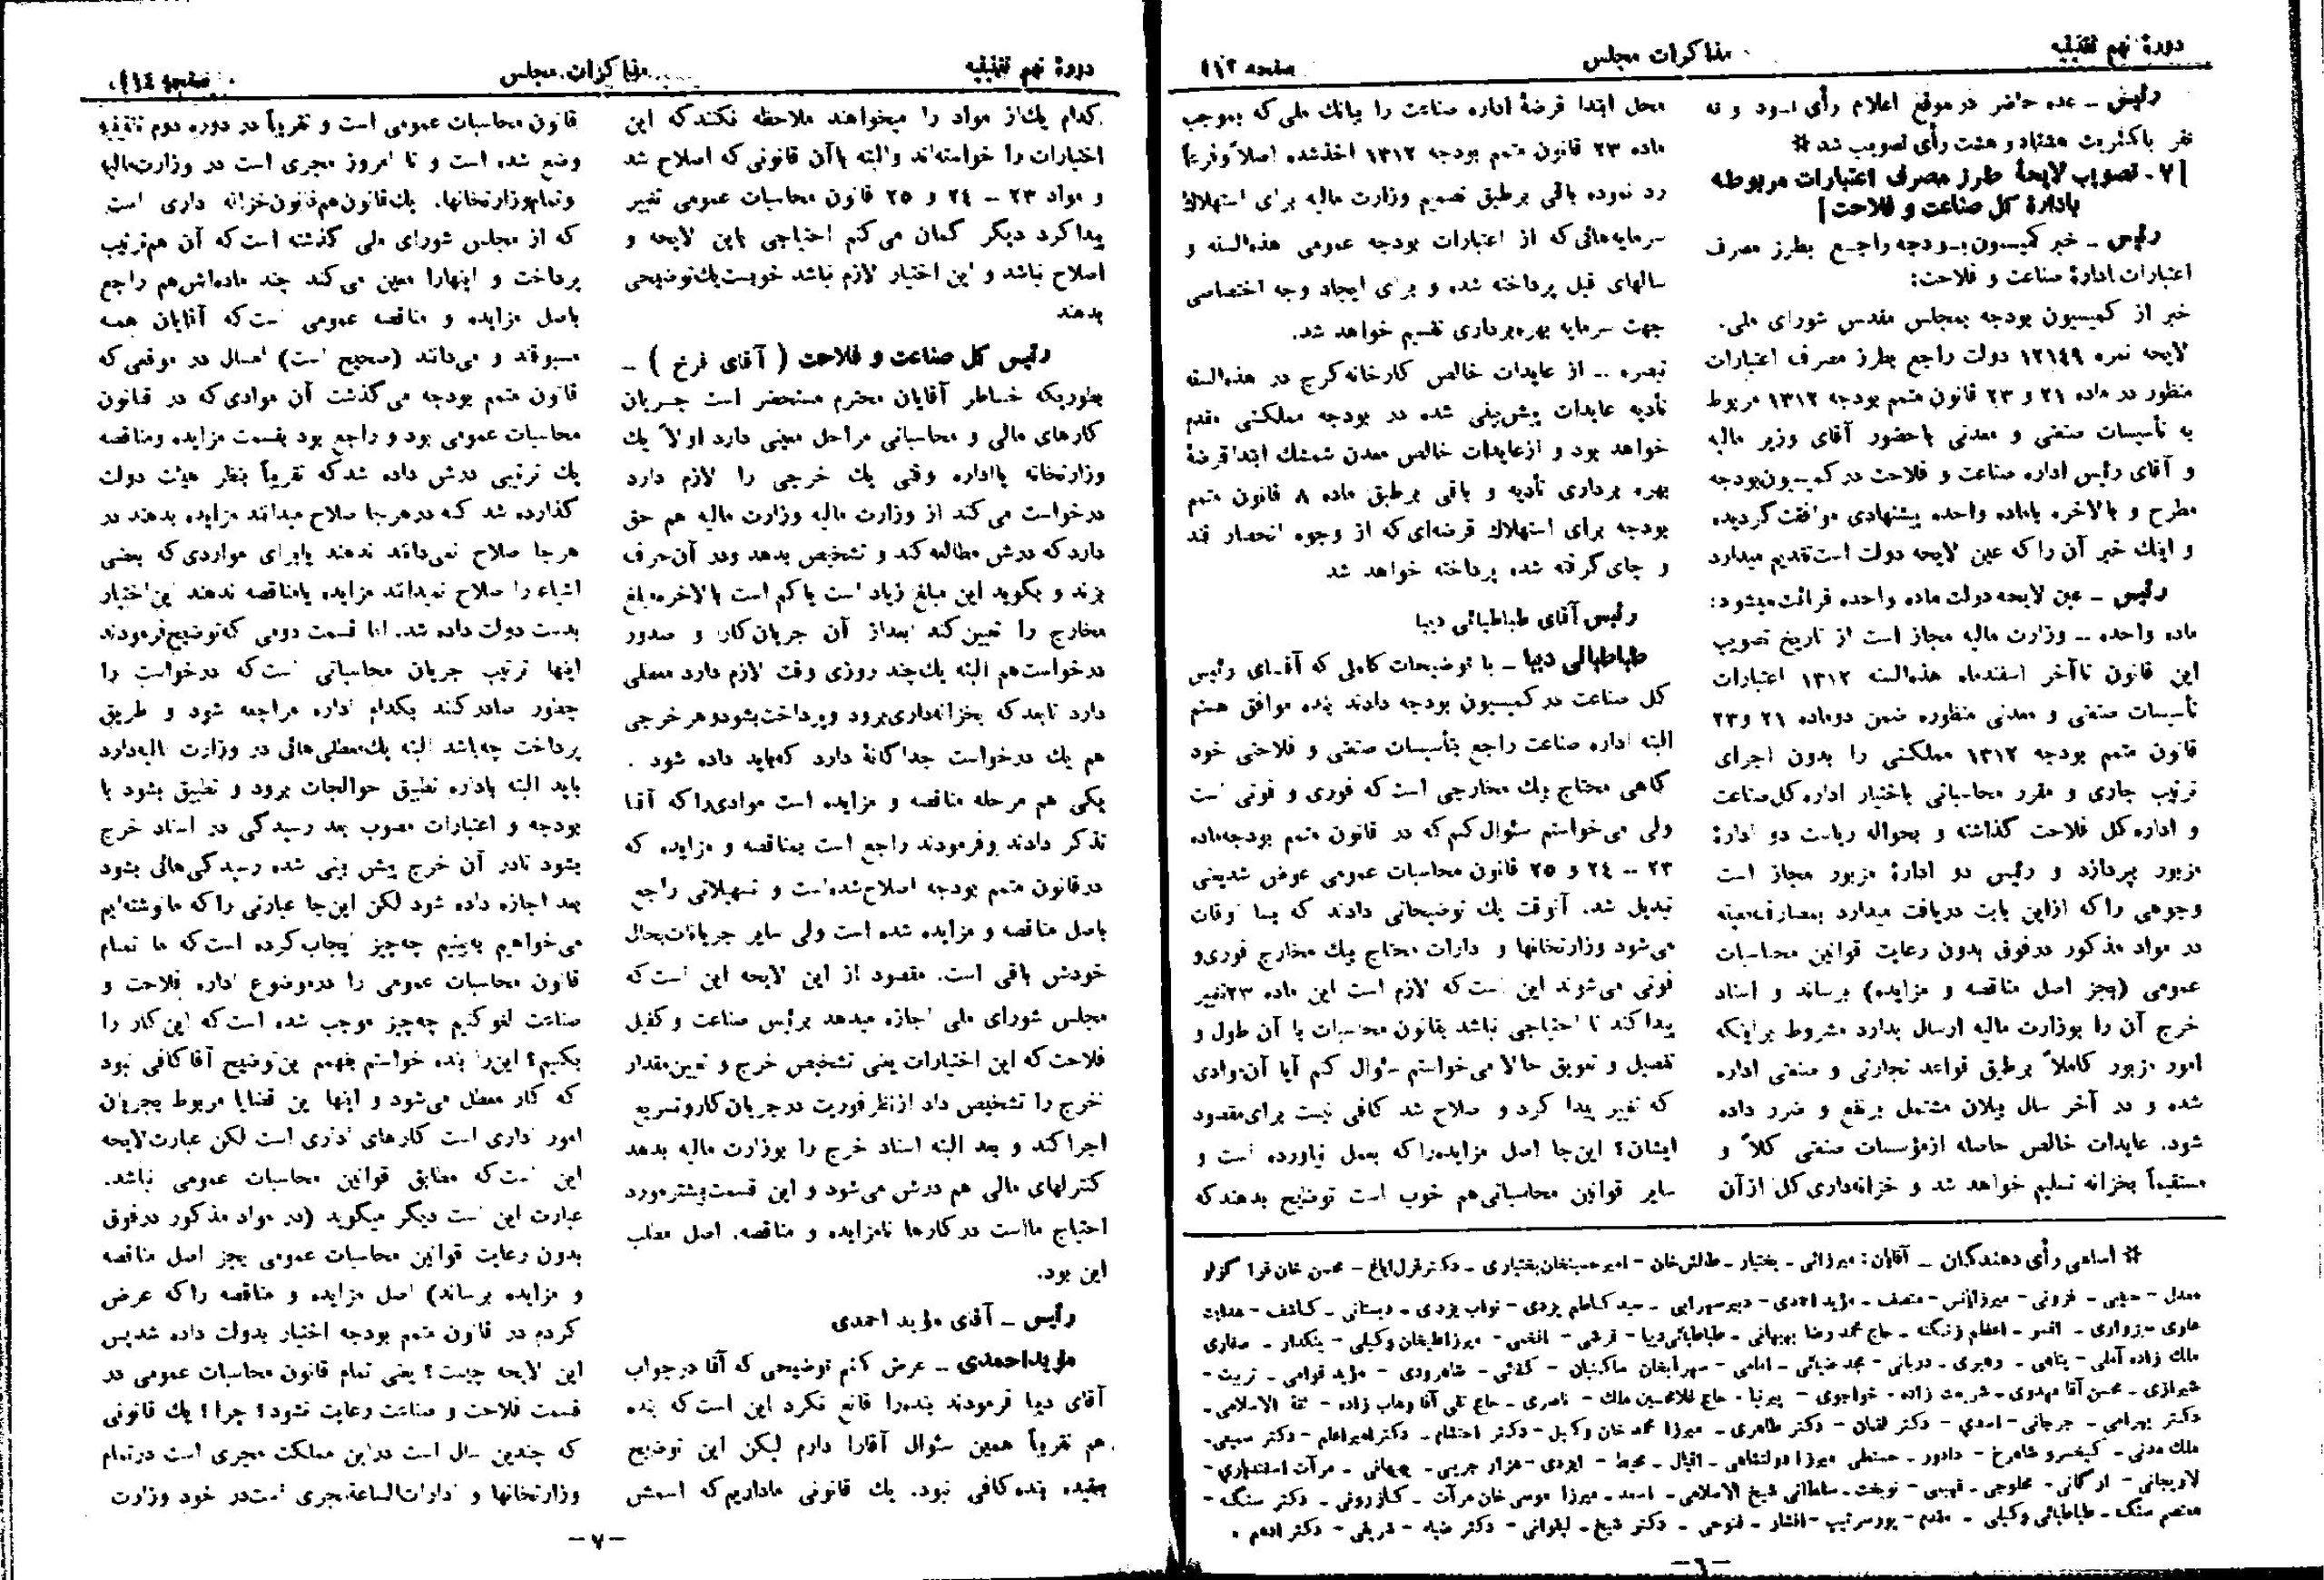 دورهٔ نهم تقنینیه
مذاکرات مجلس
صفحه ۱۱۳
رئیس ــ عده حاضر در موقع اعلام رأی نود و نه
نفر باکثریت هشتاد و هشت رأی تصویب شد *
[۷ ـ تصویب لایحهٔ طرز مصرف اعتبارات مربوطه
بادارهٔ کل صناعت و فلاحت]
رئیس ــ خبر کمیسیون بودجه راجع بطرز مصرف
اعتبارات ادارهٔ صناعت و فلاحت:
خبر از کمیسیون بودجه بمجلس مقدس شورای ملی.
لایحه نمره ۱۲۱۴۹ دولت راجع بطرز مصرف اعتبارات
منظور در ماده ۲۱ و ۲۳ قانون متمم بودجه ۱۳۱۲ مربوط
به تأسیسات صنعتی و معدنی باحضور آقای وزیر مالیه
و آقای رئیس اداره صناعت و فلاحت در کمیسیون بودجه
مطرح و بالاخره باماده واحده پیشنهادی موافقت گردیده
و اینك خبر آن را که عین لایحه دولت است تقدیم میدارد
رئیس ــ عین لایحه دولت ماده واحده قرائت میشود:
ماده واحده ــ وزارت مالیه مجاز است از تاریخ تصویب
این قانون تاآخر اسفندماه هذه‌السنه ۱۳۱۲ اعتبارات
تأسیسات صنعتی و معدنی منظوره ضمن دوماده ۲۱ و ۲۳
قانون متمم بودجه ۱۳۱۲ مملکتی را بدون اجرای
ترتیب جاری و مقرر محاسباتی باختیار اداره کل صناعت
و اداره کل فلاحت گذاشته و بحواله ریاست دو ادارهٔ
مزبور بپردازد و رئیس دو ادارهٔ مزبور مجاز است
وجوهی را که ازاین بابت دریافت میدارد بمصارف معینه
در مواد مذکور درفوق بدون رعایت قوانین محاسبات
عمومی (بجز اصل مناقصه و مزایده) برساند و اسناد
خرج آن را بوزارت مالیه ارسال بدارد مشروط براینکه
امور مزبور کاملاً برطبق قواعد تجارتی و صنعتی اداره
شده و در آخر سال بیلان مشتمل برنفع و ضرر داده
شود. عایدات خالص حاصله ازمؤسسات صنعتی کلاً و
مستقیماً بخزانه تسلیم خواهد شد و خزانه‌داری کل ازآن
محل ابتدا قرضهٔ اداره صناعت را ببانك ملی که بموجب
ماده ۲۳ قانون متمم بودجه ۱۳۱۲ اخذ شده اصلاً وفرعاً
رد نموده باقی برطبق تصمیم وزارت مالیه برای استهلاك
سرمایه‌هائی که از اعتبارات بودجه عمومی هذه‌السنه و
سالهای قبل پرداخته شده و برای ایجاد وجه اختصاصی
جهت سرمایه بهره‌برداری تقسیم خواهد شد.
تبصره ــ از عایدات خالص کارخانه کرج در هذه‌السنه
تأدیه عایدات پیش‌بینی شده در بودجه مملکتی مقدم
خواهد بود و ازعایدات خالص معدن شمشك ابتدا قرضهٔ
بهره برداری تأدیه و باقی برطبق ماده ۸ قانون متمم
بودجه برای استهلاك قرضه‌ای که از وجوه انحصار قند
و چای گرفته شده پرداخته خواهد شد
رئیس آقای طباطبائی دیبا
طباطبائی دیبا ــ با توضیحات کاملی که آقای رئیس
کل صناعت در کمیسیون بودجه دادند بنده موافق هستم
البته اداره صناعت راجع بتأسیسات صنعتی و فلاحتی خود
گاهی محتاج بيك مخارجی است که فوری و فوتی است
ولی می‌خواستم سئوال کنم که در قانون متمم بودجه‌ماده
۲۳ ــ ۲۴ و ۲۵ قانون محاسبات عمومی عوض شد یعنی
تبدیل شد. آنوقت يك توضیحاتی دادند که بسا اوقات
می‌شود وزارتخانها و ادارات محتاج بيك مخارج فوری و
فوتی می‌شوند این است که لازم است این ماده ۲۳ تغییر
پیدا کند تا احتیاجی نباشد بقانون محاسبات با آن طول و
تفصیل و تعویق حالا می‌خواستم سئوال کنم آیا آن موادی
که تغییر پیدا کرد و صلاح شد کافی نیست برای مقصود
ایشان؟ این‌جا اصل مزایده را که بعمل نیاورده است و
سایر قوانین محاسباتی هم خوب است توضیح بدهند که
* اسامی رأی دهندگان ــ آقایان: میرزائی ـ بختیار ـ طالش‌خان ـ امیرحسینخان بختیاری ـ دکتر قزل‌ایاغ ـ محسن خان قراگوزلو
معدل ـ حبیبی ـ فزونی ـ میرزایانس ـ منصف ـ مؤید احمدی ـ دبیر سهرابی ـ سید کاظم یزدی ـ نواب یزدی ـ دبستانی ـ کاشف ـ هدایت
علوی سبزواری ـ افسر ـ اعظم زنگنه ـ حاج محمد رضا بهبهانی ـ طباطبائی دیبا ـ قرشی ـ افخمی ـ میرزاطیغان وکیلی ـ بنکدار ـ صفاری
ملك زاده آملی ـ پناهی ـ رهبری ـ دربانی ـ مجد ضیائی ـ امامی ـ سهراب‌خان ساگینیان ـ کفائی ـ شاهرودی ـ مؤید قوامی ـ تربیت ـ
شیرازی ـ محسن آقا مهدوی ـ شریعت زاده ـ خواجوی ـ پیرنیا ـ حاج غلامحسین ملك ـ ناصری ـ حاج تقی آقا وهاب زاده ـ ثقة الاسلامی ـ
دکتر بهرامی ـ جرجانی ـ اسدی ـ دکتر لقمان ـ دکتر طاهری ـ میرزا محمد خان وکیل ـ دکتر احتشام ـ دکتر امیراعلم ـ دکتر سمیعی ـ
ملك مدنی ـ کیخسرو شاهرخ ـ دادور ـ مسعطی میرزا دولتشاهی ـ اقبال ـ محیط ـ ایزدی ـ هزار جریبی ـ بیهانی ـ مرآت اسفندیاری ـ
لاریجانی ـ اورگانی ـ مخلوجی ـ فهیمی ـ نوبخت ـ سلطانی شیخ الاسلامی ـ اسعد ـ میرزا موسی خان مرآت ـ کازرونی ـ دکتر سنگ ـ
معتصم سنگ ـ طباطبائی وکیلی ـ مقدم ـ پورسرتیپ ـ افشار ـ فتوحی ـ دکتر شیخ ـ لیقوانی ـ دکتر ضیاء ـ شریفی ـ دکتر ادهم .
ــ ٦ ــ
دورهٔ نهم تقنینیه
مذاکرات مجلس
صفحه ۱۱۴
کدام يك‌از مواد را میخواهند ملاحظه نکنند که این
اختیارات را خواسته‌اند والبته باآن قانونی که اصلاح شد
و مواد ۲۳ ــ ۲۴ و ۲۵ قانون محاسبات عمومی تغییر
پیدا کرد دیگر گمان می‌کنم احتیاجی باین لایحه و
اصلاح نباشد و این اختیار لازم نباشد خوبست يك توضیحی
بدهند
رئیس کل صناعت و فلاحت (آقای فرخ) ــ
بطوریکه خاطر آقایان محترم مستحضر است جریان
کارهای مالی و محاسباتی مراحل معینی دارد اولاً يك
وزارتخانه یااداره وقتی يك خرجی را لازم دارد
درخواست می‌کند از وزارت مالیه وزارت مالیه هم حق
دارد که درش مطالعه کند و تشخیص بدهد ودر آن حرف
بزند و بگوید این مبلغ زیاد است یاکم است بالاخره مبلغ
مخارج را تعیین کند بعداز آن جریان کار و صدور
درخواست هم البته يك چند روزی وقت لازم دارد معطلی
دارد تابعد که بخزانه‌داری برود و پرداخت بشود و هر خرجی
هم يك درخواست جداگانهٔ دارد که باید داده شود .
یکی هم مرحله مناقصه و مزایده است موادی را که آقا
تذکر دادند و فرمودند راجع است بمناقصه و مزایده که
در قانون متمم بودجه اصلاح شده است و تسهیلاتی راجع
باصل مناقصه و مزایده شده است ولی سایر جریانات بحال
خودش باقی است. مقصود از این لایحه این است که
مجلس شورای ملی اجازه میدهد برئیس صناعت و کفیل
فلاحت که این اختیارات یعنی تشخیص خرج و تعیین مقدار
خرج را تشخیص داد ازنظر فوریت در جریان کار و تسریع
اجرا کند و بعد البته اسناد خرج را بوزارت مالیه بدهد
کنترلهای مالی هم درش می‌شود و این قسمت بیشتر مورد
احتیاج مااست در کارها تامزایده و مناقصه. اصل مطلب
این بود.
رئیس ــ آقای مؤید احمدی
مؤید احمدی ــ عرض کنم توضیحی که آقا درجواب
آقای دیبا فرمودند بنده‌را قانع نکرد این است که بنده
هم تقریباً همین سئوال آقارا دارم لیکن این توضیح
بعقیده بنده کافی نبود. يك قانونی ماداریم که اسمش
قانون محاسبات عمومی است و تقریباً در دوره دوم تقنینیه
وضع شده است و تا امروز مجری است در وزارت مالیه
وتمام وزارتخانها. يك قانون هم قانون خزانه داری است
که از مجلس شورای ملی گذشته است که آن هم ترتیب
پرداخت و اینهارا معین می‌کند چند ماده‌اش هم راجع
باصل مزایده و مناقصه عمومی است که آقایان همه
مسبوقند و می‌دانند (صحیح است) امسال در موقعی که
قانون متمم بودجه می‌گذشت آن موادی که در قانون
محاسبات عمومی بود و راجع بود بقسمت مزایده و مناقصه
يك ترتیبی درش داده شد که تقریباً بنظر هیئت دولت
گذارده شد که در هرجا صلاح میدانند مزایده بدهند در
هرجا صلاح نمی‌دانند ندهند یابرای مواردی که بعضی
اشیاء را صلاح نمیدانند مزایده یامناقصه ندهند این اختیار
بدست دولت داده شد. اما قسمت دومی که توضیح فرمودند
اینها ترتیب جریان محاسباتی است که درخواست را
چطور صادر کنند بکدام اداره مراجعه شود و طریق
پرداخت چه‌باشد البته يك معطلی‌هائی در وزارت مالیه دارد
باید البته باداره تطبیق حوالجات برود و تطبیق بشود با
بودجه و اعتبارات مصوب بعد رسیدگی در اسناد خرج
بشود تادر آن خرج پیش بینی شده رسیدگی‌هائی بشود
بعد اجازه داده شود لکن این‌جا عبارتی را که ما نوشته‌ایم
می‌خواهیم به‌بینیم چه‌چیز ایجاب کرده است که ما تمام
قانون محاسبات عمومی را درموضوع اداره فلاحت و
صناعت لغو کنیم چه‌چیز موجب شده است که این کار را
بکنیم؟ این را بنده خواستم بفهمم این توضیح آقا کافی نبود
که کار معطل می‌شود و اینها این قضایا مربوط بجریان
امور اداری است کارهای اداری است لکن عبارت لایحه
این است که مطابق قوانین محاسبات عمومی نباشد.
عبارت این است دیگر میگوید (در مواد مذکور درفوق
بدون رعایت قوانین محاسبات عمومی بجز اصل مناقصه
و مزایده برساند) اصل مزایده و مناقصه را که عرض
کردم در قانون متمم بودجه اختیار بدولت داده شد پس
این لایحه چیست؟ یعنی تمام قانون محاسبات عمومی در
قسمت فلاحت و صناعت رعایت نشود؟ چرا؟ يك قانونی
که چندین سال است در این مملکت مجری است درتمام
وزارتخانها و ادارات الساعة مجری است در خود وزارت
ــ ۷ ــ